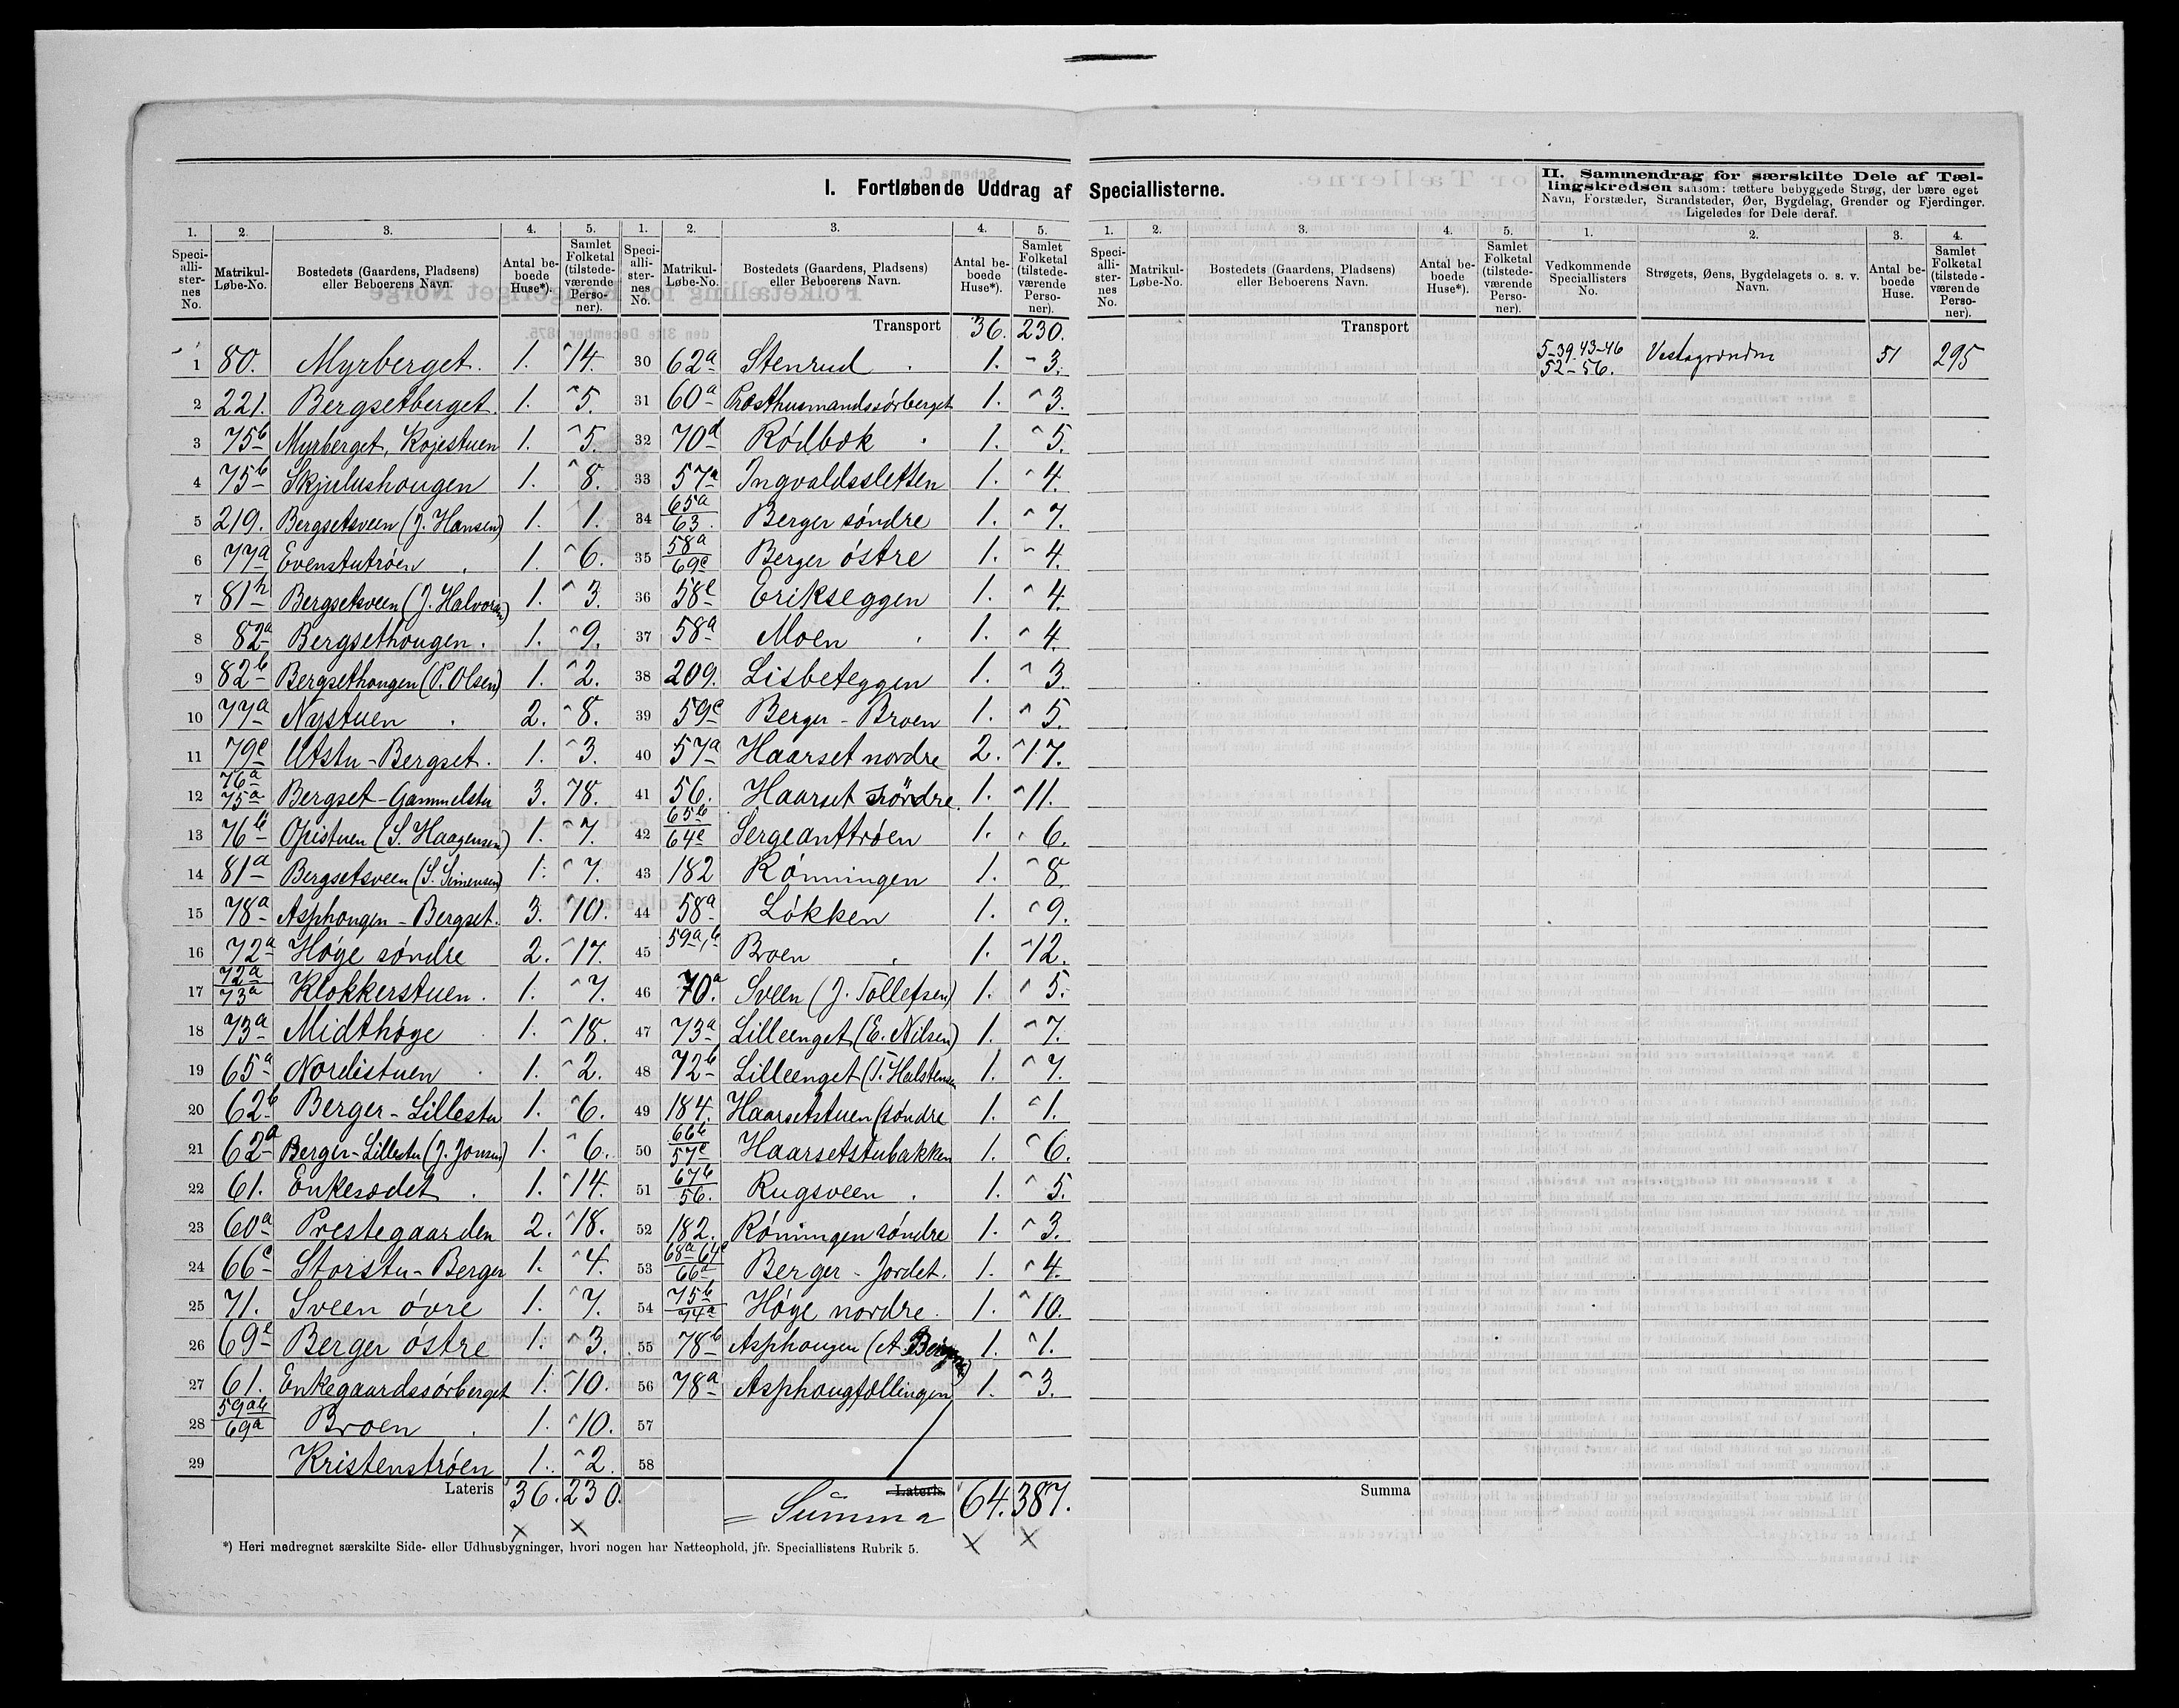 I. Fortløbende Uddrag af Speciallisterne.
II. Sammendrag for særskilte Dele af Tæl-
lingskredsen saasom: tættere bebyggede Strøg, der bære eget
Navn, Forstæder, Strandsteder, Øer, Bygdelag, Grender og Fjerdinger.
Ligeledes for Dele deraf.
1. 2. 3. 4. 5. 1. 2. 3. 4. 5. 1. 2. 3. 4. 5. 1. 2. 3. 4.
Speci-alli-ster-nes No. Matrikul-Løbe-No. Bostedets (Gaardens, Pladsens) eller Beboerens Navn. Antal be-boede Huse*). Samlet Folketal (tilstede-værende Perso-ner).
Speci-alli-ster-nes No. Matrikul-Løbe-No. Bostedets (Gaardens, Pladsens) eller Beboerens Navn. Antal be-boede Huse*). Samlet Folketal (tilstede-værende Perso-ner).
Speci-alli-ster-nes No. Matrikul-Løbe-No. Bostedets (Gaardens, Pladsens) eller Beboerens Navn. Antal be-boede Huse*). Samlet Folketal (tilstede-værende Perso-ner).
Vedkommende Speciallisters No. Strøgets, Øens, Bygdelagets o. s. v. Navn. Antal be-boede Huse. Samlet Folketal (tilstede-værende Perso-ner).
1 80. Myrberget. 1. 14.
2 221. Bergsetberget. 1. 5.
3 75b Myrberget, Kojestuen 1. 5.
4 75b Skjulushougen 1. 8.
5 219. Bergsetsveen (J. Hansen) 1. 1.
6 77a Evenstutrøen 1. 6.
7 81h Bergsetsveen (J. Halvorsen) 1. 3.
8 82a Bergsethougen. 1. 9.
9 82b Bergsethougen (P. Olsen) 1. 2.
10 77a Nystuen 2. 8.
11 79e Utstu-Bergset. 1. 3.
12 76a 75a Bergset-Gammelstu 3. 18.
13 76b Opistuen (S. Haagensen) 1. 7.
14 81a Bergsetsveen (S. Simensen) 1. 7.
15 78a Asphougen-Bergset. 3. 10.
16 72a Høge søndre 2. 17.
17 72a/73a Klokkerstuen. 1. 7.
18 73a Midthøge 1. 18.
19 65a Nordistuen 1. 2.
20 62b Berger-Lillestu 1. 6.
21 62a Berger-Lillestu (J. Jonsen) 1. 6.
22 61. Enkesædet 1. 14.
23 60a Prestegaarden 2. 18.
24 66c Storstu-Berger 1. 4.
25 71. Sveen øvre 1. 7.
26 69e Berger østre 1. 3.
27 61. Enkegaardssørberget 1. 10.
28 59ab/69a Broen 1. 10.
29 Kristenstrøen 1. 2.
Lateris 36. 230.
Transport 36. 230.
30 62a Stenrud 1. 3.
31 60a Præsthusmandssørberget 1. 3.
32 70d Rødbæk 1. 5.
33 57a Ingvaldssletten 1. 4.
34 65a/63. Berger søndre 1. 7.
35 58a/69c Berger østre 1. 4.
36 58e Erikseggen 1. 4.
37 58a Moen 1. 4.
38 209. Lisbeteggen 1. 3.
39 59c Berger-Broen 1. 5.
40 57a Haarset nordre 2. 17.
41 56. Haarset søndre. 1. 11.
42 65b/64c Sergeanttrøen 1. 6.
43 182 Rønningen 1. 8.
44 58a Løkken 1. 9.
45 59a,b Broen 1. 12.
46 70a. Sveen (J. Tollefsen) 1. 5.
47 73a Lilleenget (E. Nilsen) 1. 7.
48 72b Lilleenget (T. Halstensen 1. 7.
49 184. Haarsetstuen (søndre 1. 1.
50 66b/57c Haarsetstubakken 1. 6.
51 67b/56. Rugsveen 1. 5.
52 182. Rønningen søndre 1. 3.
53 68a 64c/66a Berger-Jordet. 1. 4.
54 75b/74a Høge nordre. 1. 10.
55 78b Asphougen (A. 1. 1.
56 78a Asphougfællingen 1. 3.
57
58
Lateris
= Summa 64. 387.
Transport
Summa
5-39. 43-46 52-56. Vestagrænden 51 295
*) Heri medregnet særskilte Side- eller Udhusbygninger, hvori nogen har Natteophold, jfr. Speciallistens Rubrik 5.